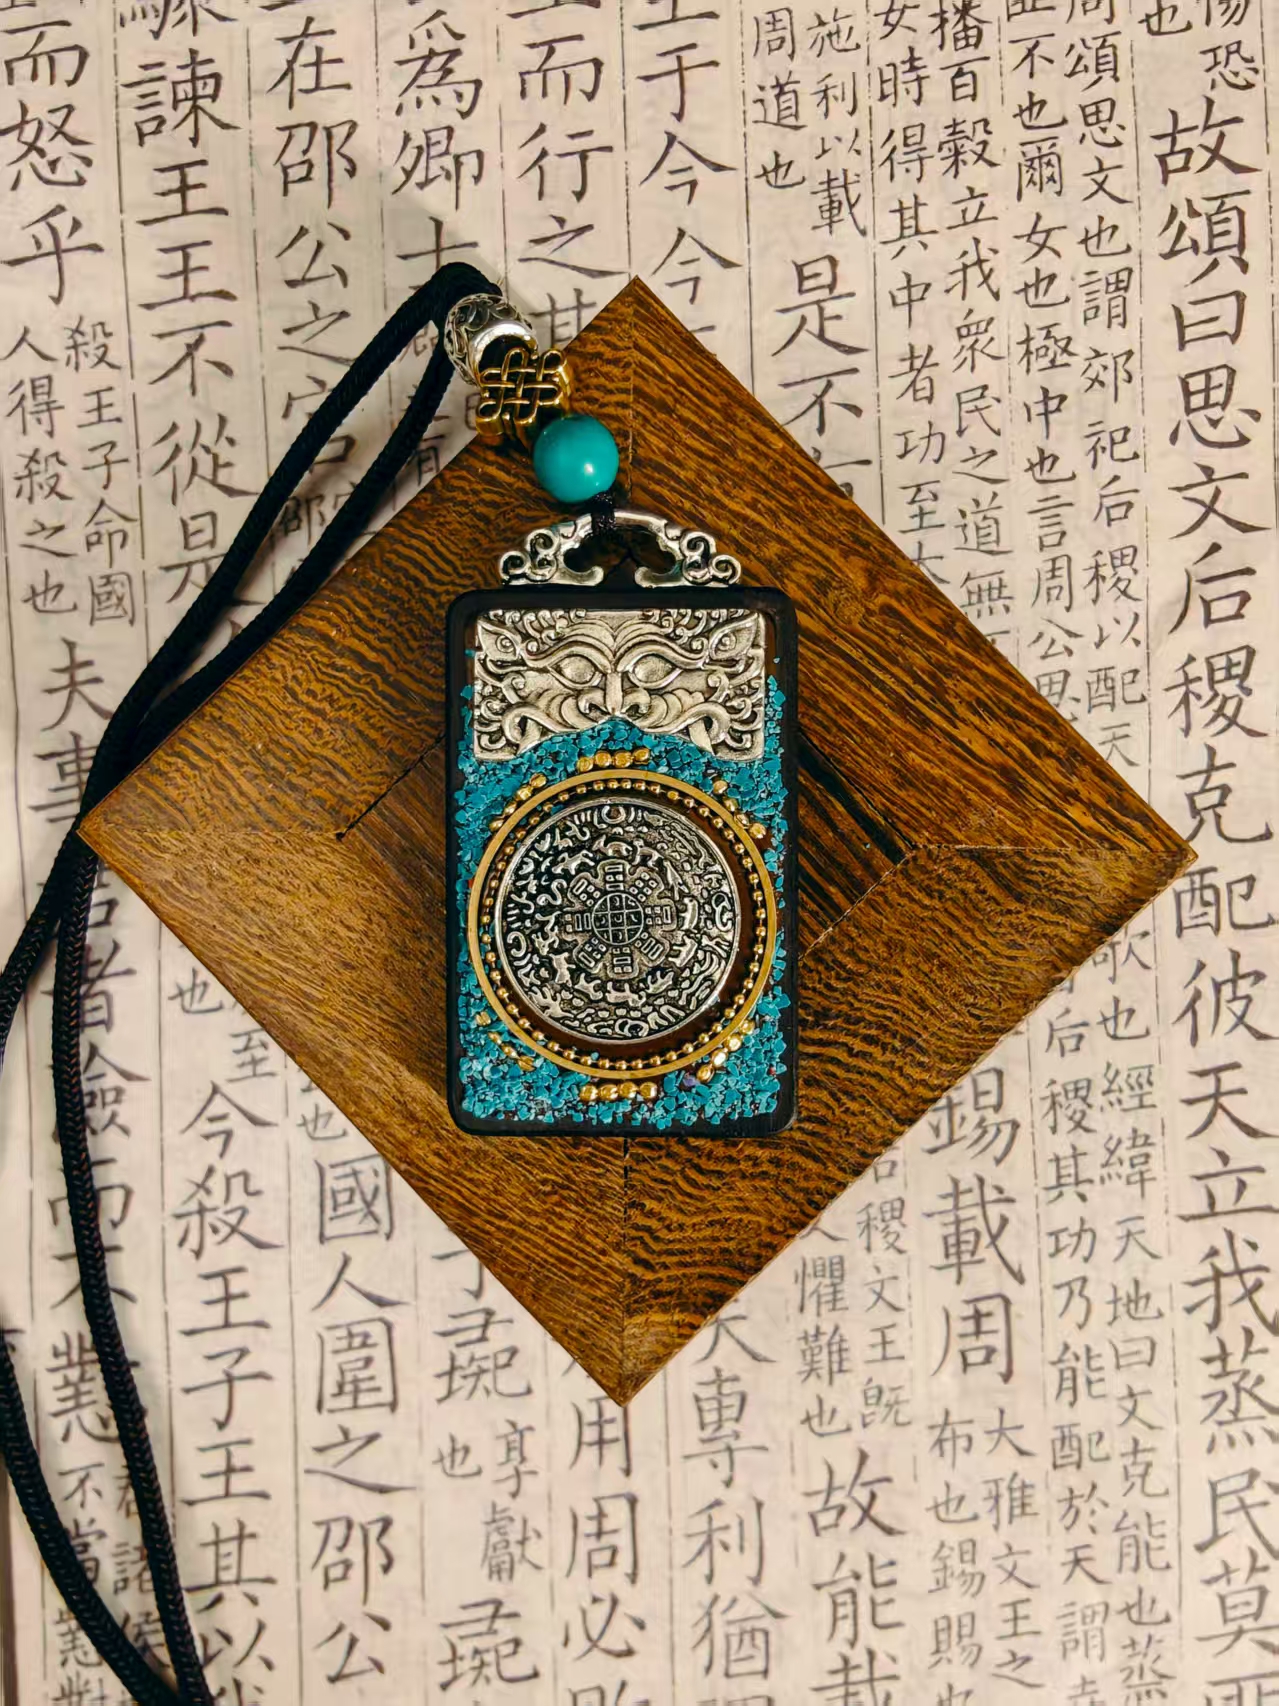 傷恐
也
故頌曰思文后稷克配彼天立我蒸民莫匪
周頌思文也謂郊祀后稷以配天
匪不也爾女也極中也言周公思
歌也經緯天地曰文克能也蒸
后稷其功乃能配於天謂
播百穀立我衆民之道無
女時得其中者功至大
錫載周
大雅文王之
布也錫賜也
施利以載
周道也
是不
后稷文王既
懼難也
故能載
王于今今
夫專利猶
王而行之其
用周必敗
爲卿士
于彘
享獻
也
彘
在邵公之宫
也
國人圍之邵公
諫王王不從是
至
也
今殺王子王其以我
而怒乎
殺王子命國
人得殺之也
夫事
者險而不懟
君諸侯
不當懟對